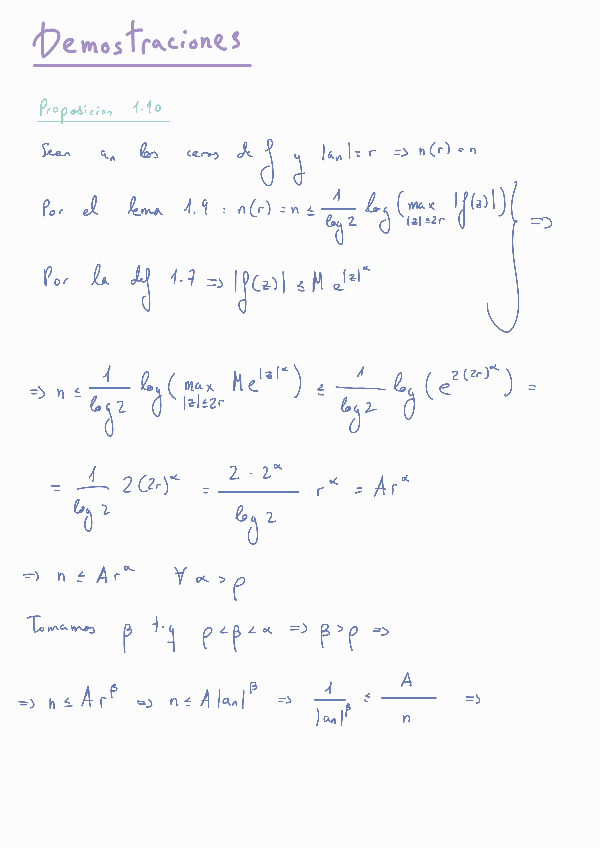 Demostraciones
Proposicion 1.10
Sean aₙ los ceros de f y |aₙ| = r => n(r) = n
Por el lema 1.9 : n(r) = n ≤ 1/log 2 log( max_{|z|=2r} |f(z)| ) } =>
Por la def 1.7 => |f(z)| ≤ M e^{|z|^α}
=> n ≤ 1/log 2 log( max_{|z|≤2r} M e^{|z|^α} ) ≤ 1/log 2 log( e^{2(2r)^α} ) =
= 1/log 2 2(2r)^α = 2·2^α/log 2 r^α = A r^α
=> n ≤ A r^α ∀ α > ρ
Tomamos β t.q ρ < β < α => β > ρ =>
=> n ≤ A r^β => n ≤ A |aₙ|^β => 1/|aₙ|^β ≤ A/n =>